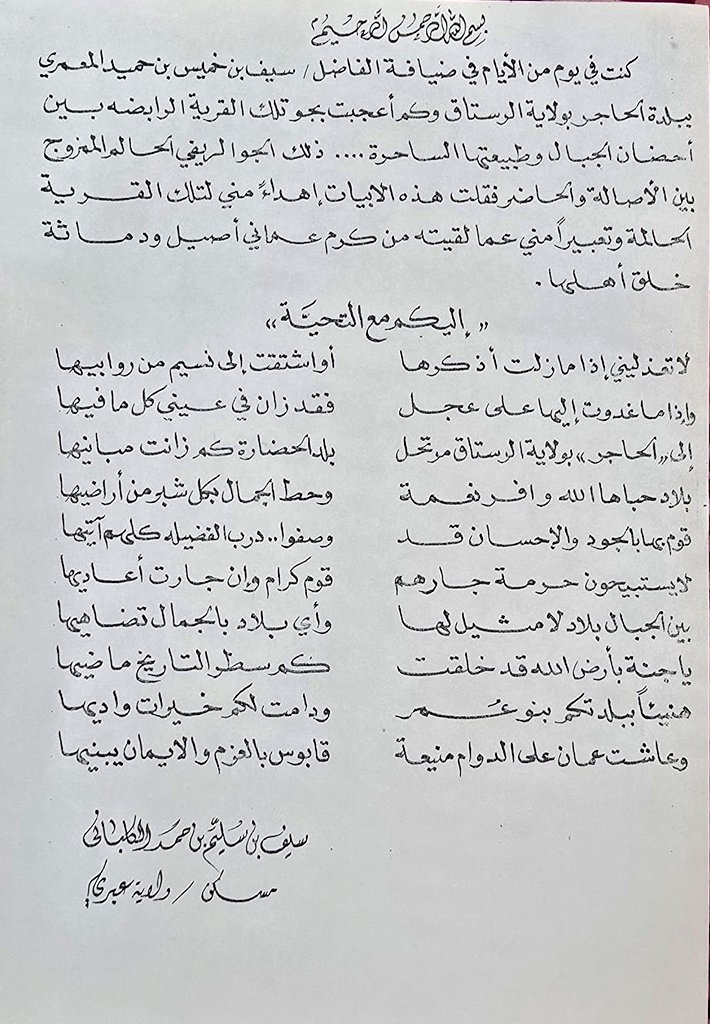 بسم الله الرحمن الرحيم
كنت في يوم من الأيام في ضيافة الفاضل / سيف بن خميس بن حميد المعمري
ببلدة الحاجر بولاية الرستاق وكم أعجبت بجو تلك القرية الرابضه بين
أحضان الجبال وطبيعتها الساحرة .... ذلك الجو الريفي الحالم الممزوج
بين الأصالة والحاضر فقلت هذه الابيات إهداءً مني لتلك القرية
الحالمة وتعبيراً مني عما لقيته من كرم عماني أصيل ودماثة
خلق أهلها .
„ إليكم مع التحيَّة “
لا تعذليني إذا ما زلت أذكرها أو اشتقت إلى نسيم من روابيها
وإذا ما غدوت إليها على عجل فقد زان في عيني كل ما فيها
إلى „الحاجر“ بولاية الرستاق مرتحل بلد الحضارة كم زانت مبانيها
بلاد حباها الله وافر نعمة وحط الجمال بكل شبر من أراضيها
قوم بها بالجود والإحسان قد وصفوا .. درب الفضيله كلهم آتيها
لا يستبيحون حرمة جارهم قوم كرام وإن جارت أعاديها
بين الجبال بلاد لا مثيل لها وأي بلاد بالجمال تضاهيها
يا جنة بأرض الله قد خلقت كم سطر التاريخ ماضيها
هنيئاً ببلدتكم بنو عُمر ودامت لكم خيرات واديها
وعاشت عمان على الدوام منيعة قابوس بالعزم والايمان يبنيها
سيف بن سليّم بن حمد الكلباني
مسكن / ولاية عبري